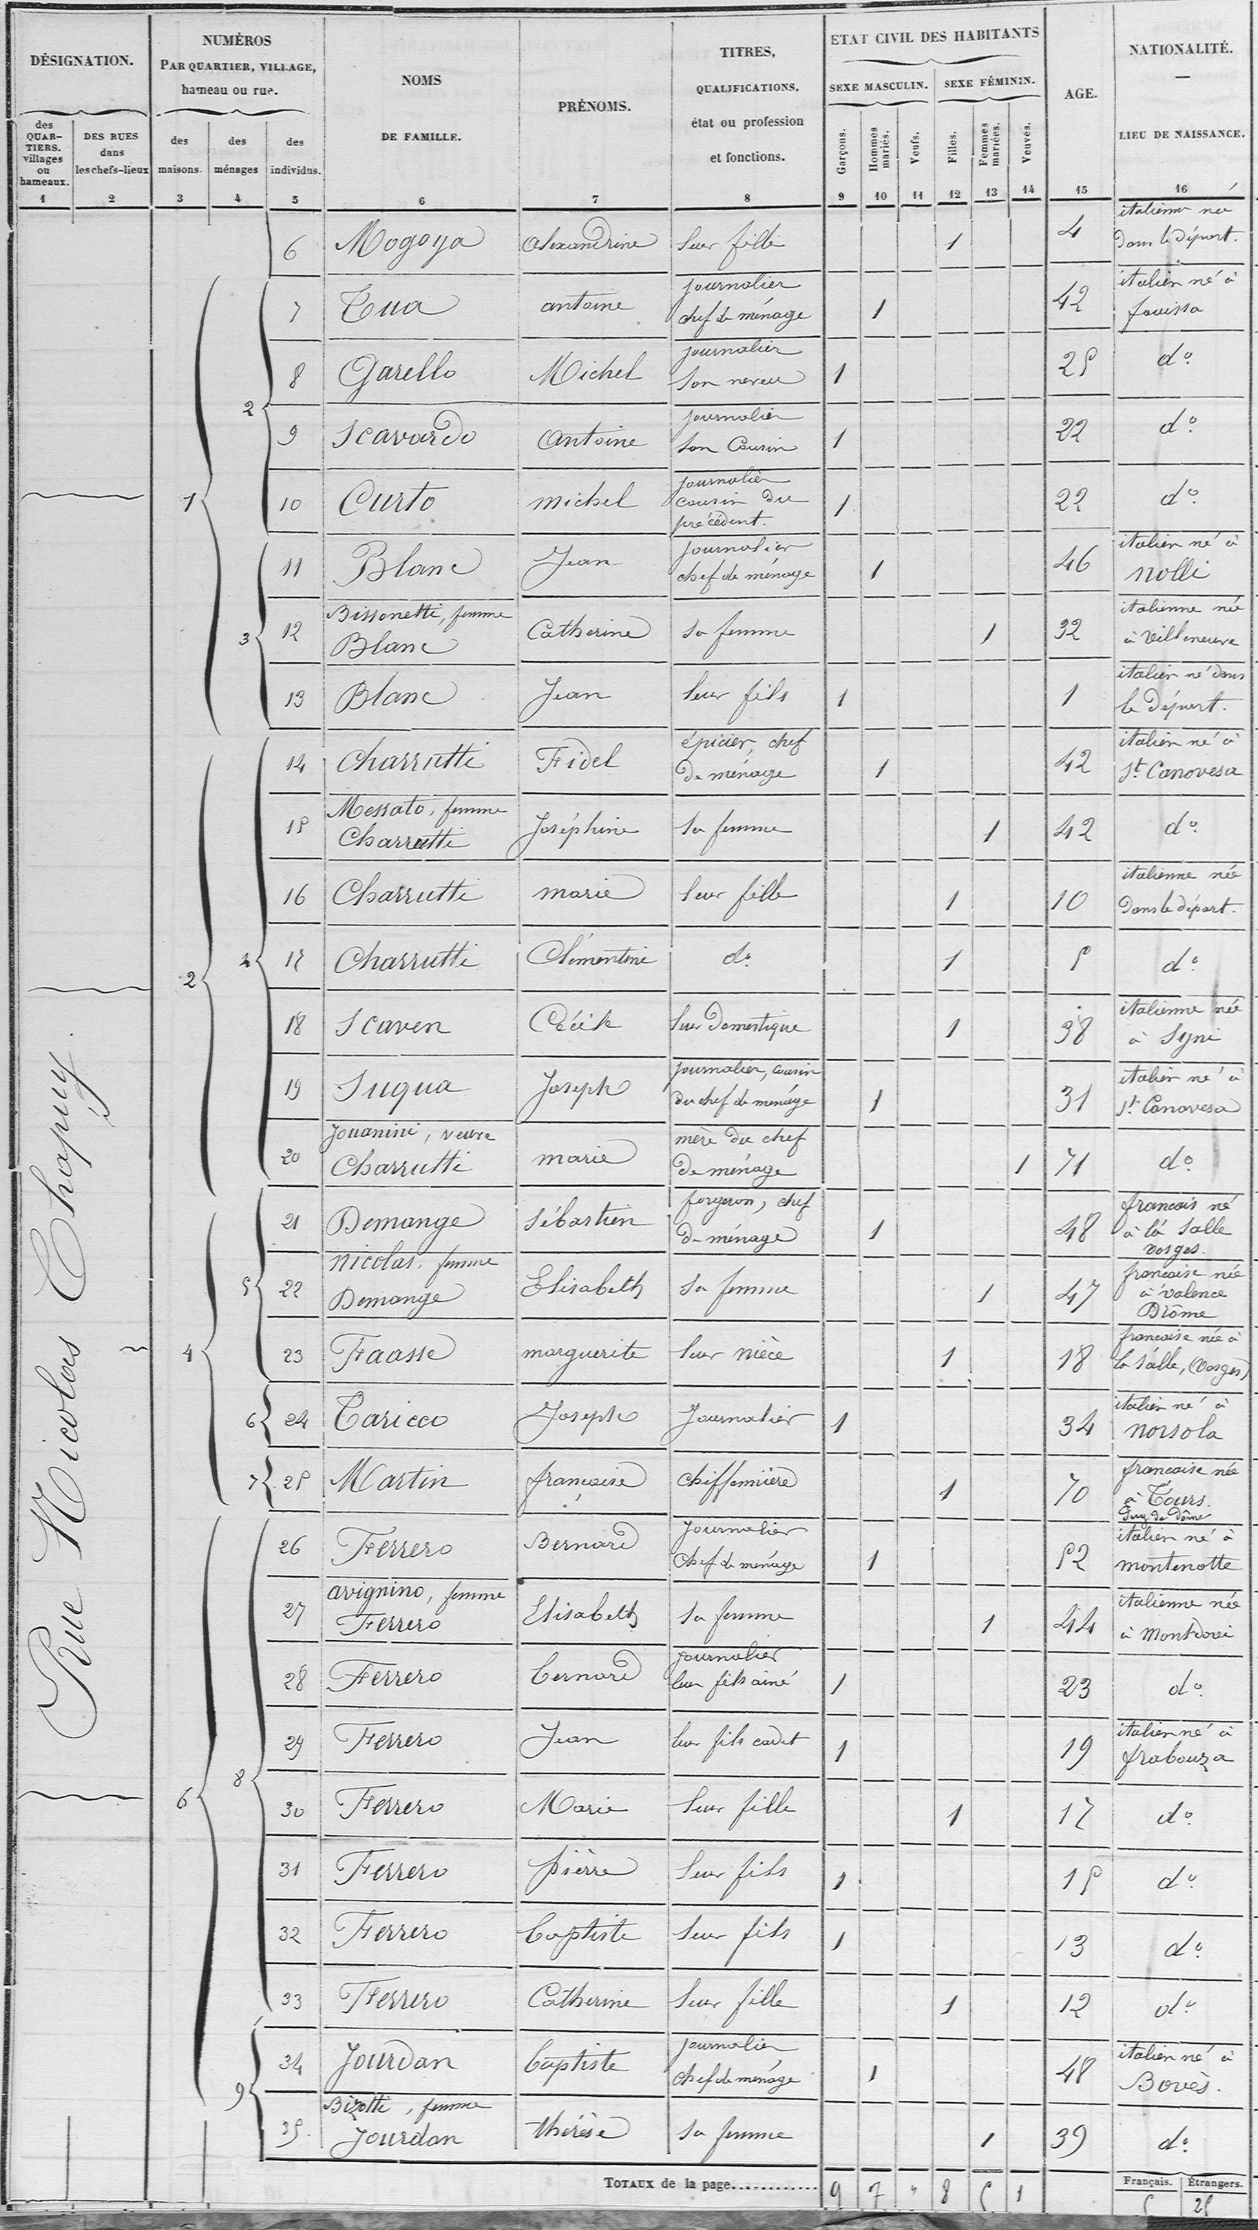 DÉSIGNATION.
NUMÉROS
PAR QUARTIER, VILLAGE,
hameau ou rue.
NOMS
DE FAMILLE.
PRÉNOMS.
TITRES,
QUALIFICATIONS,
état ou profession
et fonctions.
ETAT CIVIL DES HABITANTS
SEXE MASCULIN.
SEXE FÉMININ.
AGE.
NATIONALITÉ.
—
LIEU DE NAISSANCE.
des
QUAR-
TIERS.
villages
ou
hameaux.
DES RUES
dans
les chefs-lieux
des
maisons.
des
ménages
des
individus.
Garçons.
Hommes mariés.
Veufs.
Filles.
Femmes mariées.
Veuves.
1 2 3 4 5 6 7 8 9 10 11 12 13 14 15 16
Rue Nicolas Chapuy
6 Mogoya Alexandrine leur fille 1 4 italienne née
dans le départ.
1 2 7 Tua antoine journalier
chef de ménage 1 42 italien né à
8 Garello Michel journalier
son neveu 1 25 do
9 Scavardo Antoine journalier
son Cousin 1 22 do
10 Curto michel journalier
cousin du
précédent. 1 22 do
3 11 Blanc Jean journalier
chef de ménage 1 46 italien né à
Nolli
12 Bissonetti, femme
Blanc Catherine sa femme 1 32 italienne née
à Villeneuve
13 Blanc Jean leur fils 1 1 italien né dans
le départ.
2 4 14 Charrutti Fidel épicier, chef
de ménage 1 42 italien né à
St Canovesa
15 Messato, femme
Charrutti Joséphine sa femme 1 42 do
16 Charrutti marie leur fille 1 10 italienne née
dans le départ.
17 Charrutti Clémentine do 1 5 do
18 Scaven Cécile leur domestique 1 38 italienne née
à Syni
19 Suqua Joseph journalier, cousin
du chef de ménage 1 31 italien né à
St Canovesa
20 Jouanini, veuve
Charrutti marie mère du chef
de ménage 1 71 do
4 5 21 Demange Sébastien forgeron, chef
de ménage 1 48 francais né
à la Salle
Vosges.
22 Nicolas, femme
Demange Elisabeth sa femme 1 47 francaise née
à Valence
Drôme
23 Faasse marguerite leur nièce 1 18 francaise née à
la Salle, (Vosges)
6 24 Taricco Joseph Journalier 1 34 italien né à
Norsola
7 25 Martin françoise chiffonnière 1 70 francaise née
à Tours.
Puy de Dôme
6 8 26 Ferrero Bernard Journalier
chef de ménage 1 52 italien né à
montenotte
27 avignino, femme
Ferrero Elisabeth sa femme 1 44 italienne née
à Montdovi
28 Ferrero Bernard journalier
leur fils ainé 1 23 do
29 Ferrero Jean leur fils cadet 1 19 italien né à
frabouza
30 Ferrero Marie leur fille 1 17 do
31 Ferrero pièrre leur fils 1 15 do
32 Ferrero Baptiste leur fils 1 13 do
33 Ferrero Catherine leur fille 1 12 do
9 34 Jourdan Baptiste journalier
chef de ménage 1 48 italien né à
Bovès.
35 Bizotti, femme
Jourdan thérèse sa femme 1 39 do
TOTAUX de la page............ 9 7 " 8 5 1
Français. Étrangers.
5 25